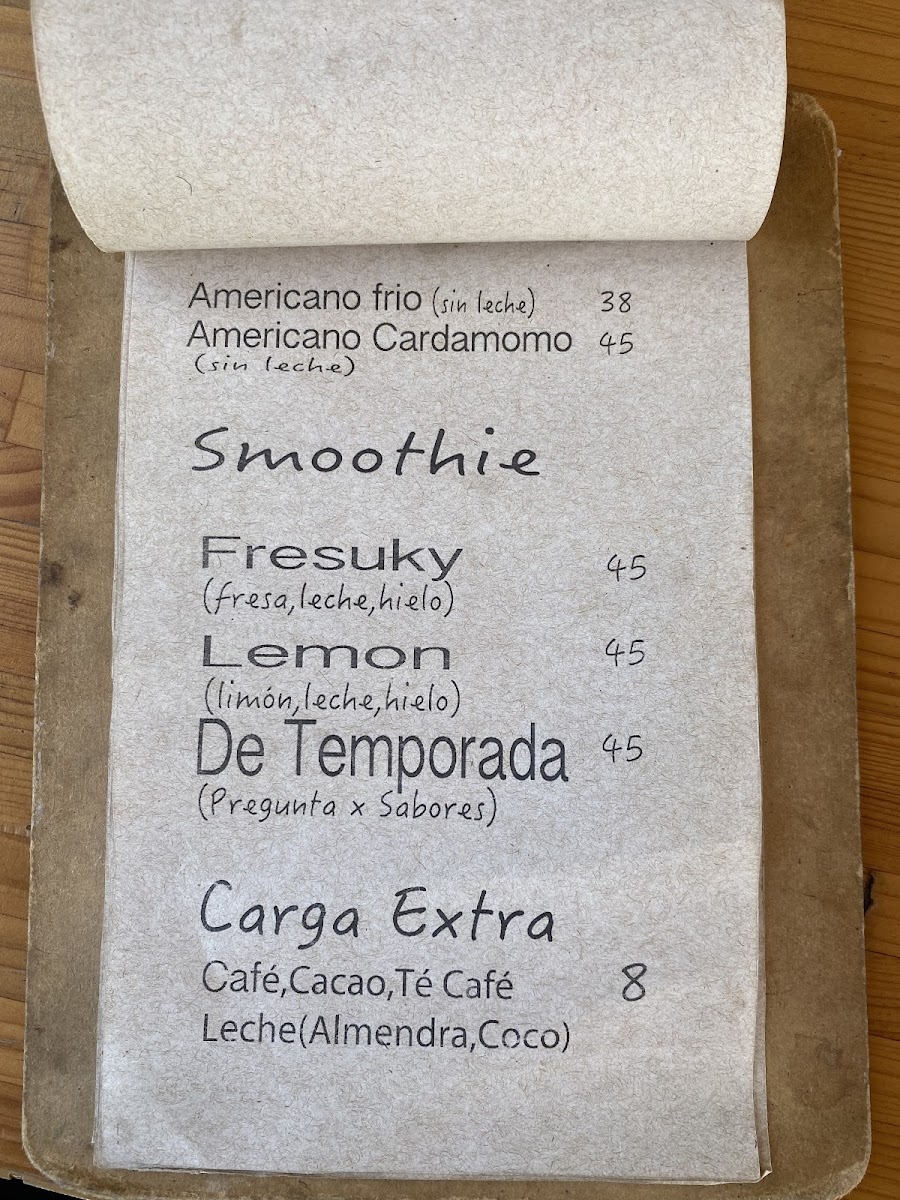 Americano frio (sin leche) 38
Americano Cardamomo 45
(sin leche)
Smoothie
Fresuky 45
(fresa,leche,hielo)
Lemon 45
(limón,leche,hielo)
De Temporada 45
(Pregunta x Sabores)
Carga Extra
Café,Cacao,Té Café 8
Leche(Almendra,Coco)